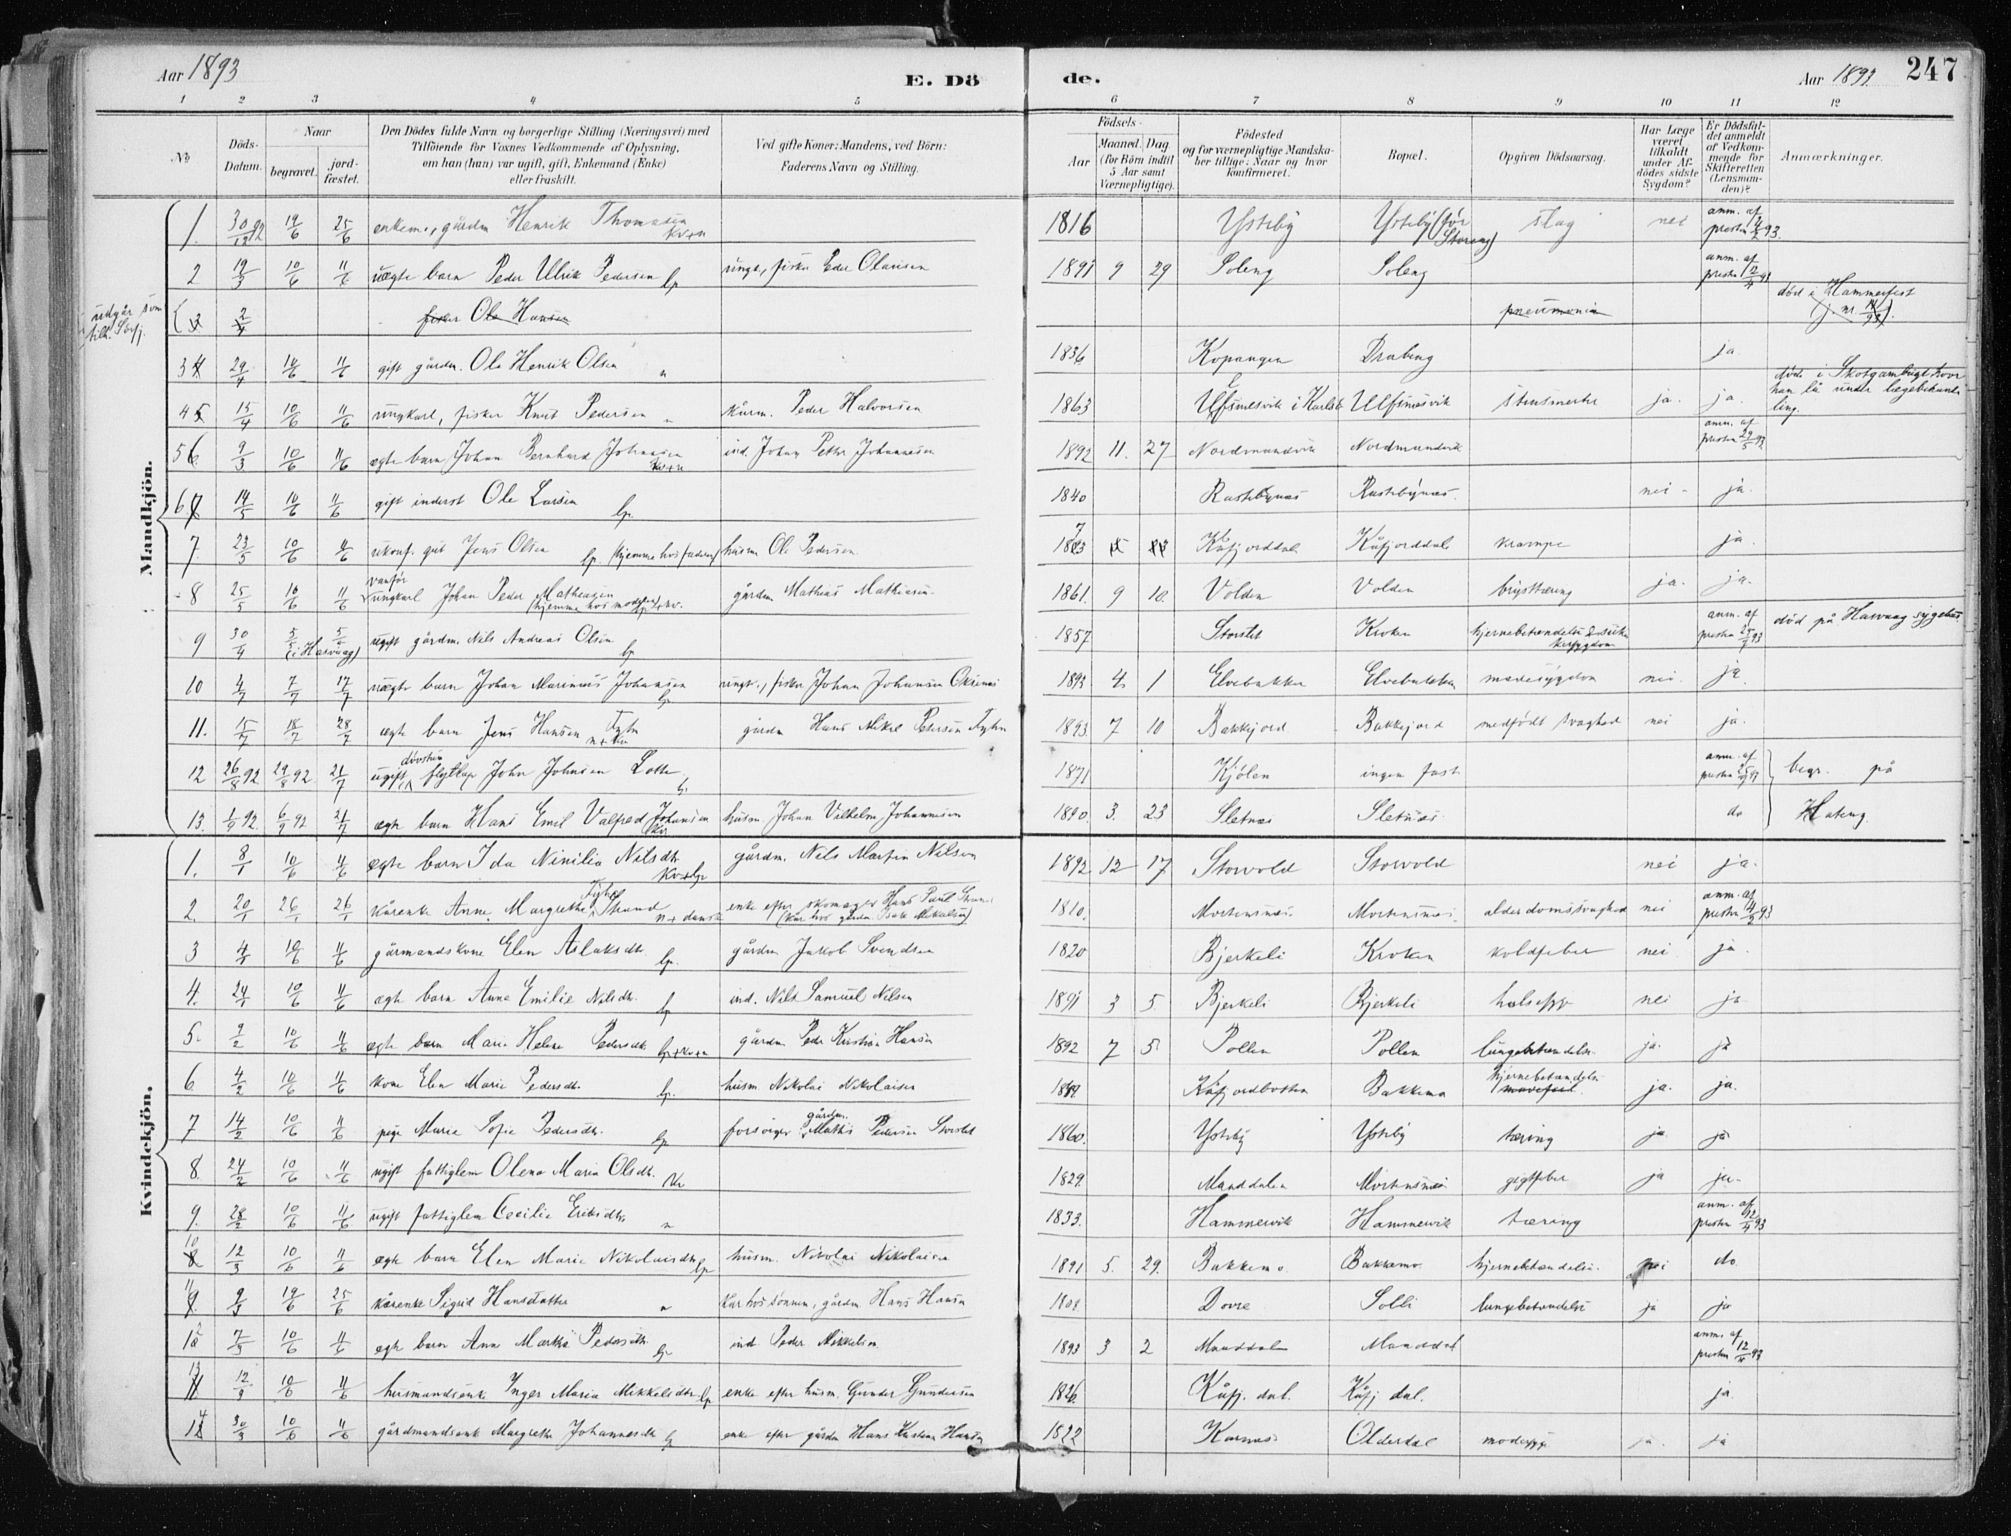 Aar 1893
E. Dö
de.
Aar 1893
247
1 2 3 4 5 6 7 8 9 10 11 12
No
Döds-Datum.
Naar
begravet.
jord-fæstet.
Den Dödes fulde Navn og borgerlige Stilling (Næringsvei) med
Tilföiende for Voxnes Vedkommende af Oplysning,
om han (hun) var ugift, gift, Enkemand (Enke)
eller fraskilt.
Ved gifte Koner: Mandens, ved Börn:
Faderens Navn og Stilling.
Födsels-
Aar
Maaned. Dag
(for Börn indtil
5 Aar samt
Værnepligtige).
Födested
og for værnepligtige Mandska-
ber tillige: Naar og hvor
konfirmeret.
Bopæl.
Opgiven Dödsaarsag.
Har Læge
været
tilkaldt
under Af-
dödes sidste
Sygdom?
Er Dödsfal-
det anmeldt
af Vedkom-
mende for
Skifteretten
(Lensman-
den)?
Anmærkninger.
Mandkjön.
1. 30/12 92 19/6 25/6 enkem., gårdm Henrik Thomassen kv+n 1816 Ysteby Ysteby (før Storeng) slag nei anm. af presten 93.
2 19/3 10/6 11/6 uægte barn Peder Ulrik Pedersen lp ungk., fisker Eder Olausen 1891 9 29 Soleng Soleng anm. af presten 12/4 93
udgår som tilh. Sørfj.
3 2/4 fisker Ole Hansen pneumonia død i Hammerfest (j. nr. 14/93).
3 29/4 10/6 11/6 gift gårdm. Ole Henrik Olsen n 1836 Kopangen Drabeng ja
4 15/4 10/6 11/6 ungkarl, fisker Knut Pedersen n kårm. Peder Halvorsen 1863 Ulfsnesvik i Karlsø Ulfsnæsvik ja. ja. døde i Skotgambugt hvor han lå under lægebehandling.
5 9/3 10/6 11/6 ægte barn Johan Bernhard Johansen kv+n ind. Johan Petter Johannesen 1892 11. 27 Nordmandvik Nordmandvik anm. af presten 93
6 14/5 10/6 11/6 gift inderst Ole Larsen lp. 1840 Rastebynæs Rastebynæs. nei - ja.
7. 23/5 10/6 11/6 ukonf. gut Jens Olsen lp. (hjemme hos faderen) husm Ole Pedersen 1873 Kåfjorddal Kåfjorddal krampe ja.
8 25/5 10/6 11/6 vanfør ungkarl Johan Peder Mathiesen (hjemme hos moderen) gårdm Mathias Mathiesen. 1861. 9 10. Volden Volden brysttæring ja. ja.
9 30/4 5/5 5/5 (i Hasvaag) ugift gårdm. Nils Andreas Olsen lp 1857 Storslet Kroken hjernebetændelse anm. af presten 93 død på Hasvaag sygehus
10 4/7 7/7 17/7 uægte barn Johan Marinius Johansen lp ungk., fisker Johan Johansen 1893 4 1 Elvebakken Elvebakken mavesygdom nei. ja.
11. 15/7 18/7 28/7 ægte barn Jens Hansen Fyhn n+kv gårdm Hans Mikal Petersen Fyhn 1893 7 10 Bakkejord Bakkejord medfødt svaghed nei ja.
12 26/8 92 29/8 92. 21/7 ugift døvstum flytlap John Johnsen Lotte l. 1871 Kjölen ingen fast anm. af presten begr. på
13. 1/9 92. 6/9 92 21/7 ægte barn Hans Emil Valfred Johansen kv. husm Johan Vilhelm Johannesen 1890. 3. 23 Sletnæs Sletnæs do Hateng.
Kvindekjön.
1. 8/1 10/6 11/6 ægte barn Ida Ninilia Nilsdtr. kv+lp gårdm. Nils Martin Nilsen 1892 12 17 Storvold Storvold nei ja.
2. 20/1 26/1 26/1 kårenke Anne Margrethe Fyhn Strand n+dansk enke efter skomager Hans Paul Strand 1810. Mortensnæs. Mortensnæs. alderdomssvaghed nei anm. af presten 14/2 93
3 4/1 10/6 11/6 gårmandskone Elen Aslaksdtr. lp. gårdm Jakob Svendsen 1820 Bjerkeli Kroken koldfeber nei ja.
4. 24/1 10/6 11/6 ægte barn Anne Emilie Nilsdtr. lp ind. Nils Samuel Nilsen 1891 3 5. Bjerkeli Bjerkeli halsesyge nei ja
5. 9/2 10/6 11/6 ægte barn Marie Helene Pedersdtr. lp+kv+n gårdm Peder Kristian Hansen 1892 7 5. Pollen Pollen lungebetændelse ja. ja
6 4/2 10/6 11/6 kone Elen Marie Pedersdtr. lp. husm Nikolai Nikolaisen Kåfjordbotten Bakkemo hjernebetændelse ja. ja.
7 14/2 10/6 11/6 pige Marie Sofie Pedersdtr. lp forsørger gårdm. Mathis Pedersen Storslet 1860. Ysteby Ysteby tæring ja. ja
8. 24/2 10/6 11/6 ugift fattiglem Olena Maria Olsdtr. kv 1829. Manddalen Mortensnæs gigtfeber ja ja.
9. 28/2 10/6 11/6 ugift fattiglem Cecilie Eriksdtr. n 1833. Hammervik Hammervik tæring anm. af presten 12/4 93
10 12/3 10/6 11/6 ægte barn Elen Marie Nikolaisdtr. lp husm. Nikolai Nikolaisen 1891 5. 29. Bakkemo Bakkemo hjernebetændelse. nei do.
11 9/3 19/6 25/6 kårenke Sigrid Hansdatter n kår hos sønnen, gårdm Hans Hansen Dovre Solli lungebetændelse ja ja
12 7/3 10/6 11/6 ægte barn Ane Marthe Pedersdtr. lp ind Peder Mikkelsen 1893 3 2 Manddalen Manddal anm. af presten 12/4 93
13 12/3 10/6 11/6 husmandsenke Inger Maria Mikkelsdtr. lp enke efter husm. Gunder Gundersen 1826. Kåfj. dal. Kåfj dal. ja.
14 30/3 10/6 11/6 gårdmandsenke Margrethe Johannesdtr. lp enke efter gårdm Hans Kristian Hansen 1822 Karnæs Olderdal modersyge ja. ja